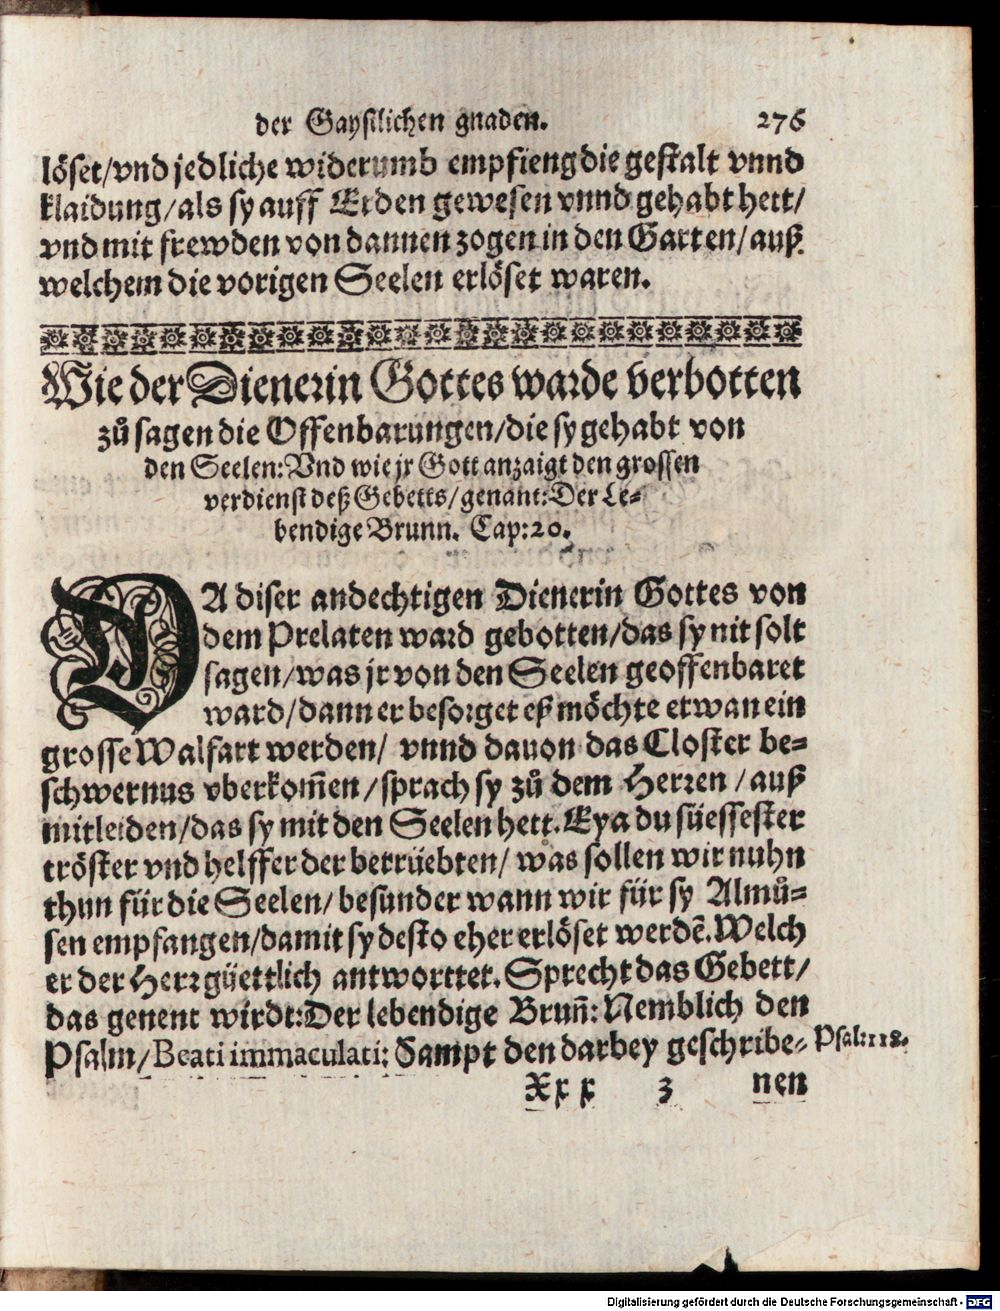 der Gaystlichen gnaden. 276
löset/vnd jedliche widerumb empfieng die gestalt vnnd
klaidung/als sy auff Erden gewesen vnnd gehabt hett/
vnd mit frewden von dannen zogen in den Garten/auß
welchem die vorigen Seelen erlöset waren.
Wie der Dienerin Gottes warde verbotten
zů sagen die Offenbarungen/die sy gehabt von
den Seelen: Vnd wie jr Gott anzaigt den grossen
verdienst deß Gebetts/genant: Der Le-
bendige Brunn. Cap: 20.
DA diser andechtigen Dienerin Gottes von
dem Prelaten ward gebotten/das sy nit solt
sagen/was jr von den Seelen geoffenbaret
ward/dann er besorget eß möchte etwan ein
grosse Walfart werden/ vnnd dauon das Closter be-
schwernus vberkom̄en/sprach sy zů dem Herren/auß
mitleiden/das sy mit den Seelen hett. Eya du süessester
tröster vnd helffer der betrüebten/ was sollen wir nuhn
thun für die Seelen/ besunder wann wir für sy Almů-
sen empfangen/damit sy desto eher erlöset werdē. Welch
er der Herr güettlich antworttet. Sprecht das Gebett/
das genent wirdt: Der lebendige Brun̄: Nemblich den
Psalm/ Beati immaculati: Sampt den darbey geschribe-
Psal: 118.
Xxx 3 nen
Digitalisierung gefördert durch die Deutsche Forschungsgemeinschaft - DFG